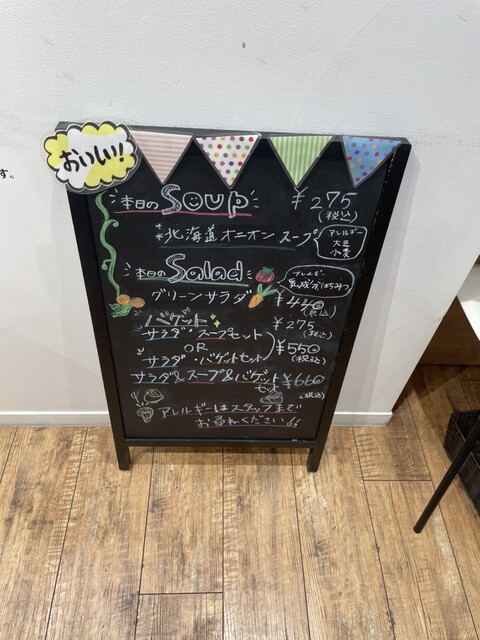 す。
おいしい!
本日のSoup ¥275
(税込)
北海道オニオンスープ
アレルギー
大豆
小麦
本日のSalad
アレルギー
乳成分・はちみつ
グリーンサラダ ¥440
(税込)
バゲット ¥275
(税込)
サラダ・スープセット
OR ¥550
(税込)
サラダ・バゲットセット
サラダ&スープ&バゲット ¥660
セット (税込)
アレルギーはスタッフまで
お尋ねください